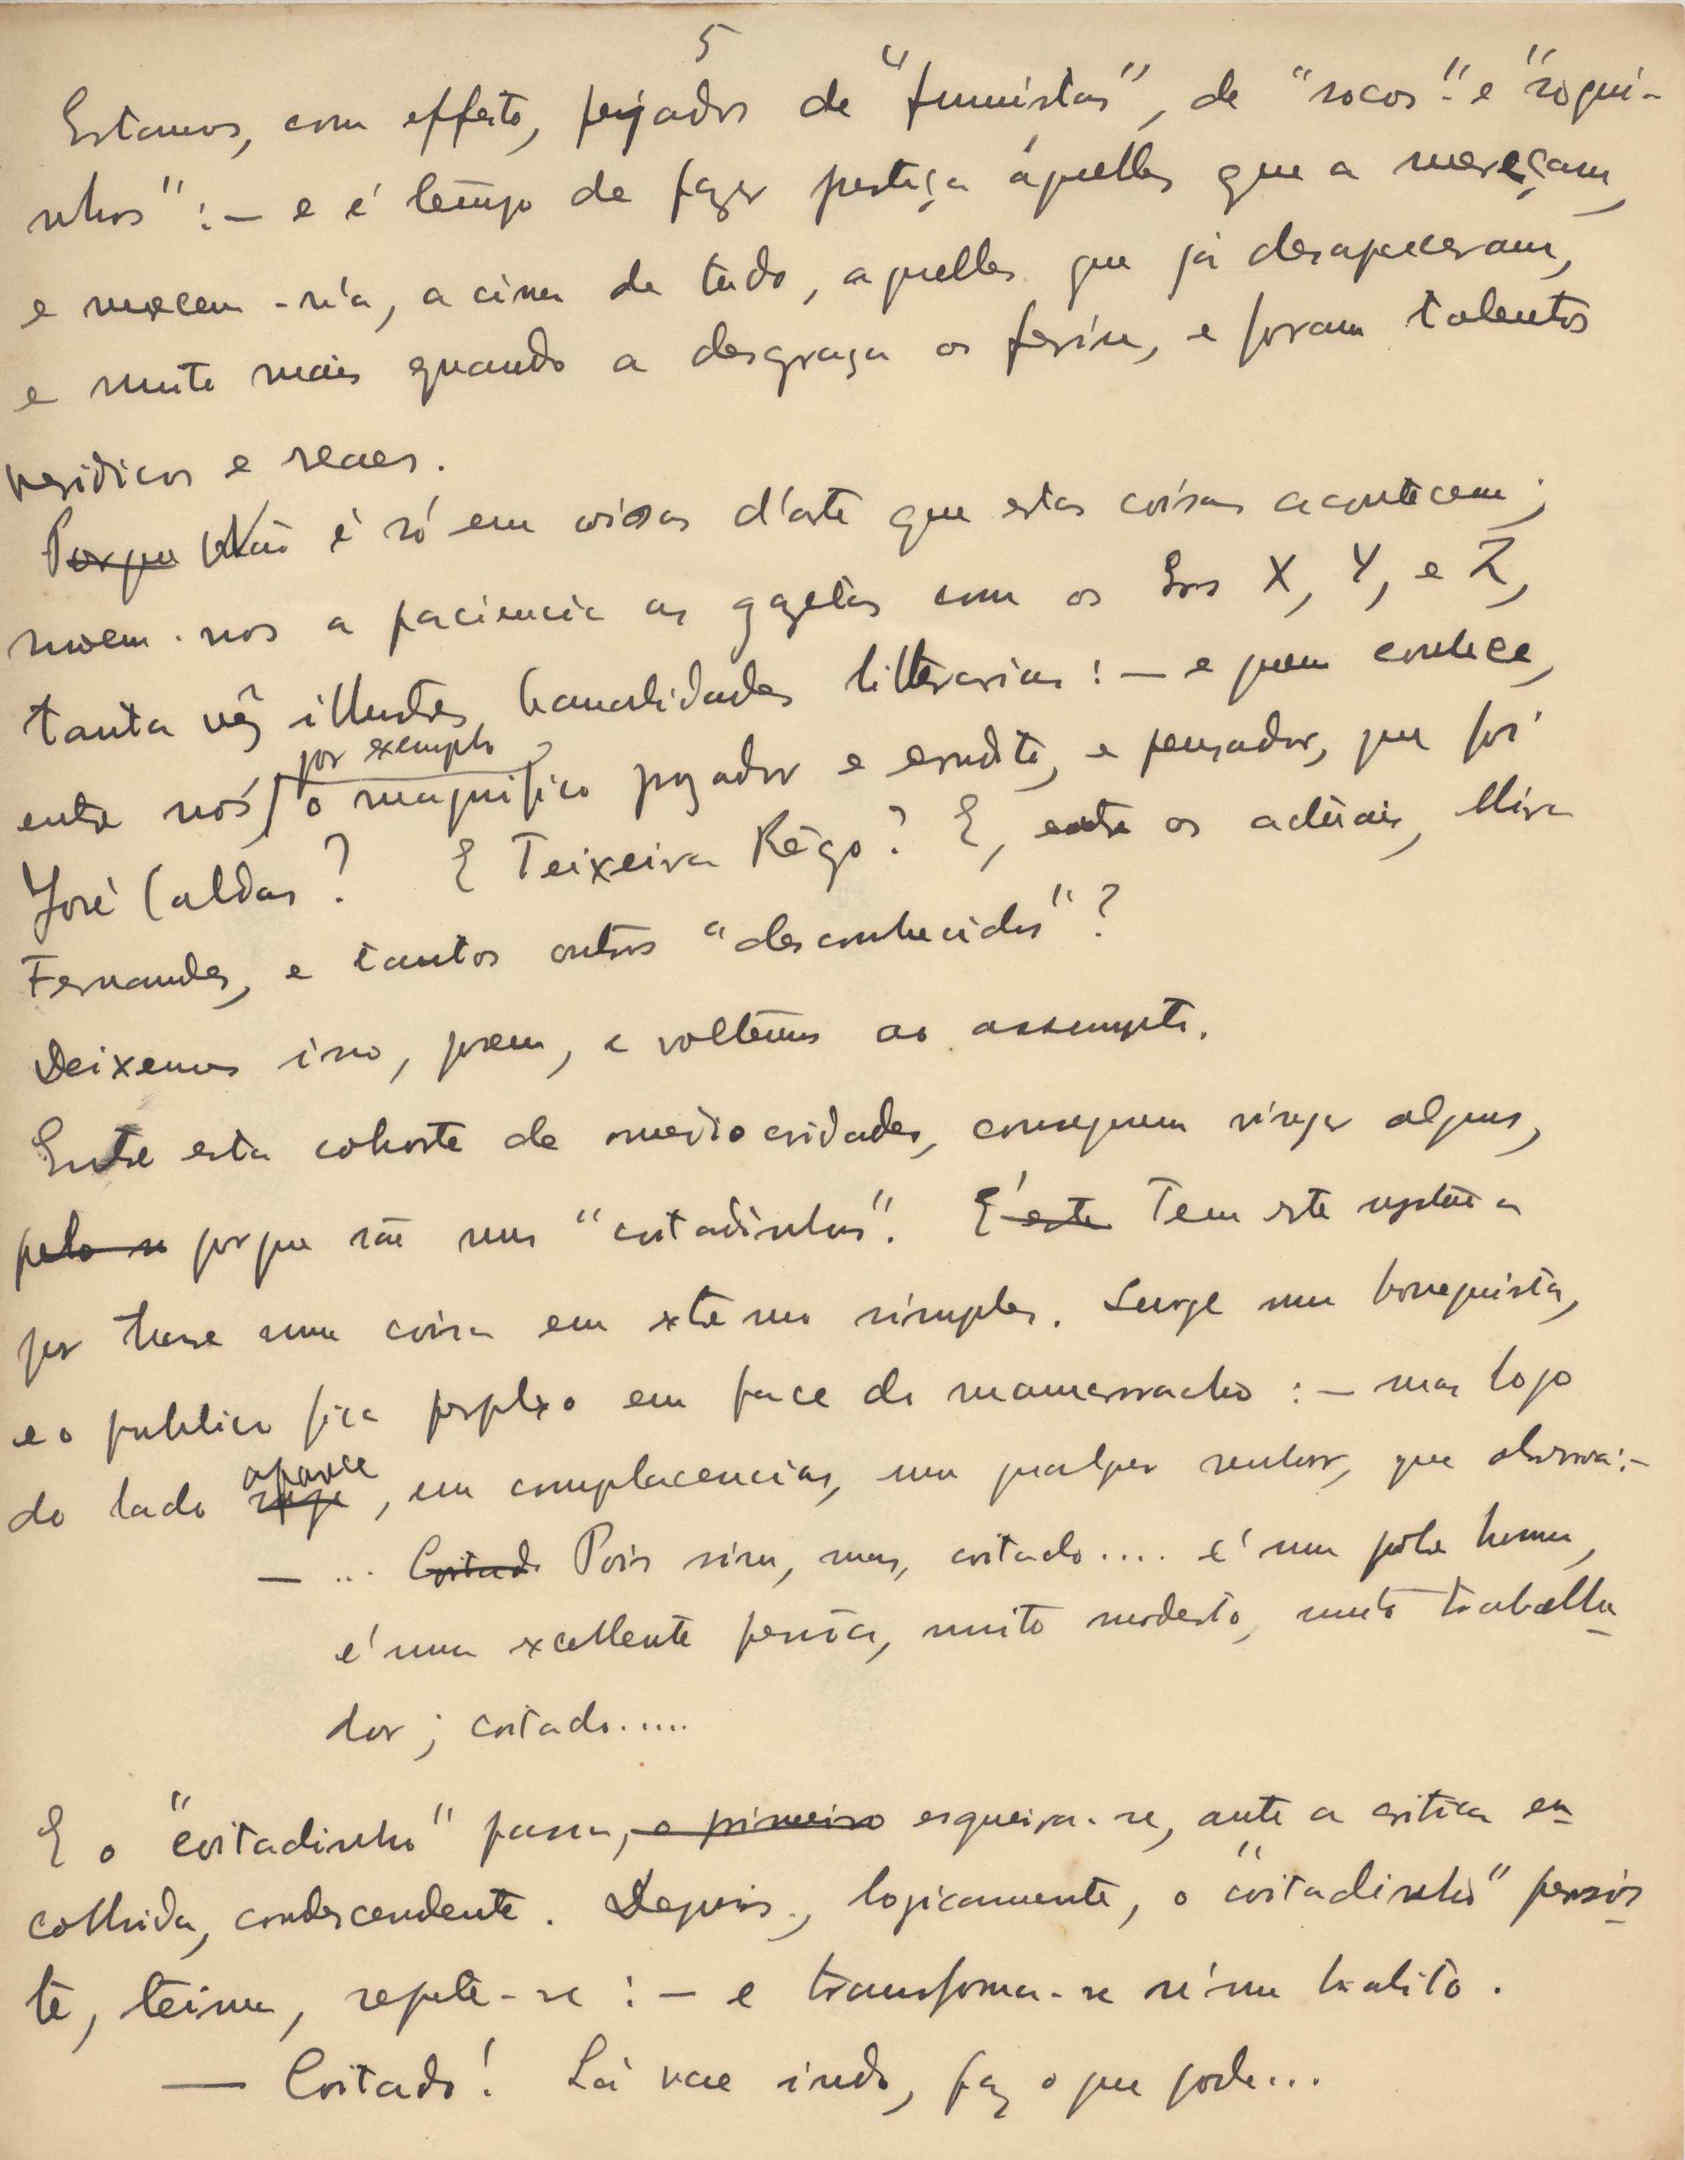 5
Estamos, com effeito, pejados de "fumistas", de "socos" e "soqui-
nhos": — e é tempo de fazer justiça áquelles que a mereçam,
e merecem-n'a, acima de tudo, aquelles que já desapareceram,
e muito mais quando a desgraça os feriu, e foram talentos
veridicos e reaes.
Porque Não é só em coisas d'arte que estas coisas acontecem;
moem-nos a paciencia as gazetas com os Snrs X, Y, e Z,
tanta vêz illustres banalidades litterarias: — e quem conhece,
por exemplo
entre nós, o magnifico prozador e erudito, e pensador, que foi
José Caldas? E Teixeira Rêgo? E, entre os actuais,
Fernandes, e tantos outros "desconhecidos"?
Deixemos isso, porem, e voltêmos ao assumpto.
Entre esta cohorte de mediocridades, conseguem vingar alguns,
pelo porque são uns "coitadinhos". E' este Tem este
por base uma coisa em extremo simples. Surge um bonequista,
e o publico fica perplexo em face do mamarracho: — mas logo
aparece
do lado surge, em complacencias, um qualquer senhor, que observa: —
— ... Coitado Pois sim, mas, coitado.... é um pobre homem,
é uma excellente pessôa, muito modesto, muito trabalha-
dor; coitado.....
E o "coitadinho" passa, o primeiro esgueira-se, ante a critica en-
colhida, condescendente. Depois, logicamente, o "coitadinho" persis-
te, teima, repete-se: — e transforma-se n'um habito.
— Coitado! Lá vae indo, faz o que pode...